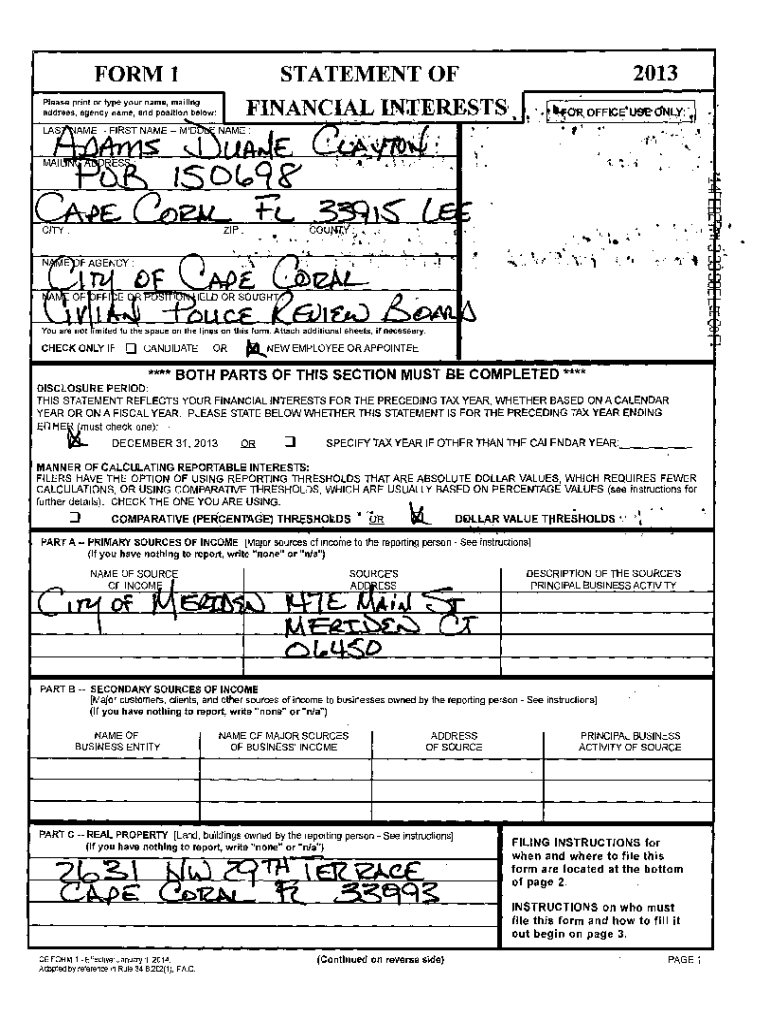 FORM 1
STATEMENT OF
FINANCIAL INTERESTS
2013
Please print or type your name, mailing
address, agency name, and position below:
FOR OFFICE USE ONLY:
LAST NAME - FIRST NAME - MIDDLE NAME:
ADAMS DUANE CLAYTON
MAILING ADDRESS
POB 150698
CAPE CORAL FL 33915 LEE
CITY: ZIP: COUNTY:
NAME OF AGENCY:
CITY OF CAPE CORAL
NAME OF OFFICE OR POSITION HELD OR SOUGHT:
CIVILIAN POLICE REVIEW BOARD
You are not limited to the space on the lines on this form. Attach additional sheets, if necessary.
CHECK ONLY IF CANDIDATE OR NEW EMPLOYEE OR APPOINTEE
**** BOTH PARTS OF THIS SECTION MUST BE COMPLETED ****
DISCLOSURE PERIOD:
THIS STATEMENT REFLECTS YOUR FINANCIAL INTERESTS FOR THE PRECEDING TAX YEAR, WHETHER BASED ON A CALENDAR
YEAR OR ON A FISCAL YEAR. PLEASE STATE BELOW WHETHER THIS STATEMENT IS FOR THE PRECEDING TAX YEAR ENDING
EITHER (must check one):
DECEMBER 31, 2013 OR SPECIFY TAX YEAR IF OTHER THAN THE CALENDAR YEAR:
MANNER OF CALCULATING REPORTABLE INTERESTS:
FILERS HAVE THE OPTION OF USING REPORTING THRESHOLDS THAT ARE ABSOLUTE DOLLAR VALUES, WHICH REQUIRES FEWER
CALCULATIONS, OR USING COMPARATIVE THRESHOLDS, WHICH ARE USUALLY BASED ON PERCENTAGE VALUES (see instructions for
further details). CHECK THE ONE YOU ARE USING.
COMPARATIVE (PERCENTAGE) THRESHOLDS OR DOLLAR VALUE THRESHOLDS
PART A -- PRIMARY SOURCES OF INCOME [Major sources of income to the reporting person - See instructions]
(If you have nothing to report, write "none" or "n/a")
NAME OF SOURCE
OF INCOME
SOURCE'S
ADDRESS
DESCRIPTION OF THE SOURCE'S
PRINCIPAL BUSINESS ACTIVITY
CITY OF MERIDEN 147 E MAIN ST
MERIDEN CT
06450
PART B -- SECONDARY SOURCES OF INCOME
[Major customers, clients, and other sources of income to businesses owned by the reporting person - See instructions]
(If you have nothing to report, write "none" or "n/a")
NAME OF
BUSINESS ENTITY
NAME OF MAJOR SOURCES
OF BUSINESS' INCOME
ADDRESS
OF SOURCE
PRINCIPAL BUSINESS
ACTIVITY OF SOURCE
PART C -- REAL PROPERTY [Land, buildings owned by the reporting person - See instructions]
(If you have nothing to report, write "none" or "n/a")
2631 NW 29TH TERRACE
CAPE CORAL FL 33993
FILING INSTRUCTIONS for
when and where to file this
form are located at the bottom
of page 2.
INSTRUCTIONS on who must
file this form and how to fill it
out begin on page 3.
CE FORM 1 - Effective: January 1, 2014.
Adopted by reference in Rule 34-8.202(1), F.A.C.
(Continued on reverse side)
PAGE 1